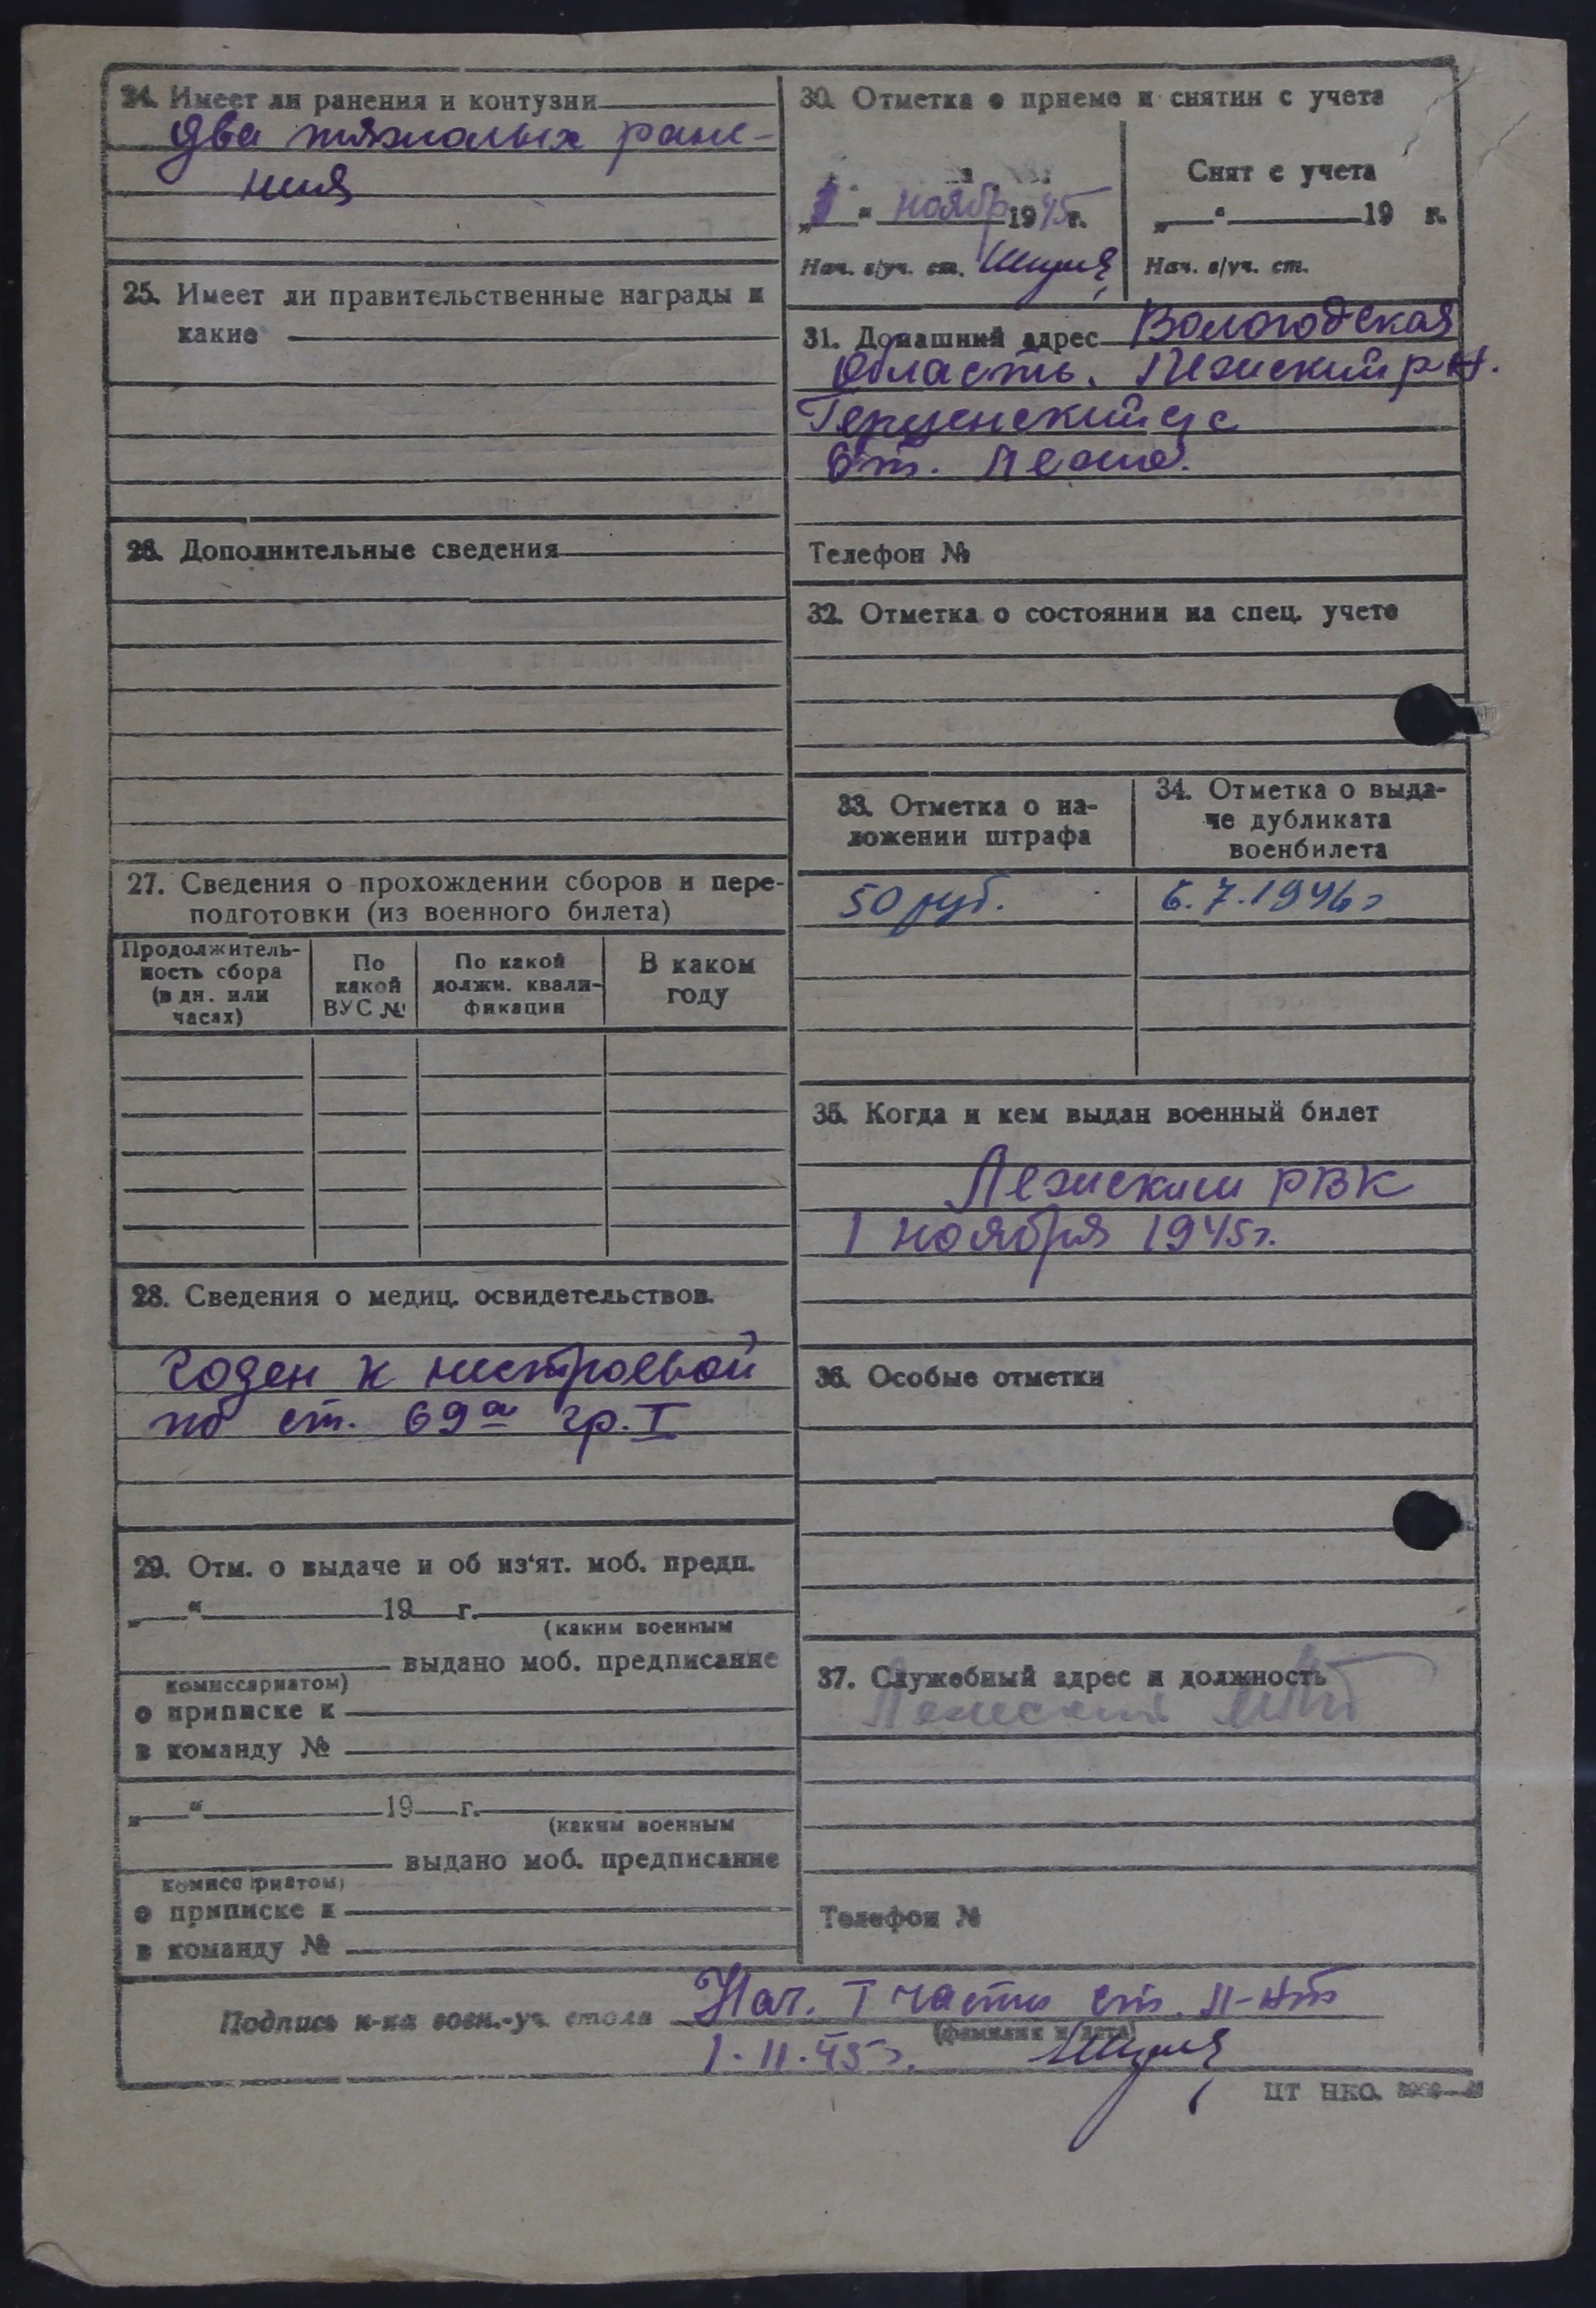 24. Имеет ли ранения и контузии
два тяжолых ране-
ния
25. Имеет ли правительственные награды и
какие
26. Дополнительные сведения
27. Сведения о прохождении сборов и пере-
подготовки (из военного билета)
Продолжитель-
ность сбора
(в дн. или
часах)
По
какой
ВУС №
По какой
должн. квали-
фикации
В каком
году
28. Сведения о медиц. освидетельствов.
годен к нестроевой
по ст. 69а гр. I
29. Отм. о выдаче и об из'ят. моб. предп.
„ “ 19 г.
(каким военным
выдано моб. предписание
комиссариатом)
о приписке к
в команду №
„ “ 19 г.
(каким военным
выдано моб. предписание
комиссариатом)
о приписке к
в команду №
30. Отметка о приеме и снятии с учета
„1“ ноябр 1945 г.
Нач. в/уч. ст.
Снят с учета
„ “ 19 г.
Нач. в/уч. ст.
31. Домашний адрес Вологодская
область. Лежский р-н.
с/с
ст. Лежа.
Телефон №
32. Отметка о состоянии на спец. учете
33. Отметка о на-
ложении штрафа
50 руб.
34. Отметка о выда-
че дубликата
военбилета
6.7.1946 г
35. Когда и кем выдан военный билет
Лежским РВК
1 ноября 1945 г.
36. Особые отметки
37. Служебный адрес и должность
Лежский
Телефон №
Подпись н-ка воен.-уч. стола Нач. I части ст. л-нт
(фамилия и дата)
1.11.45 г.
ЦТ НКО.